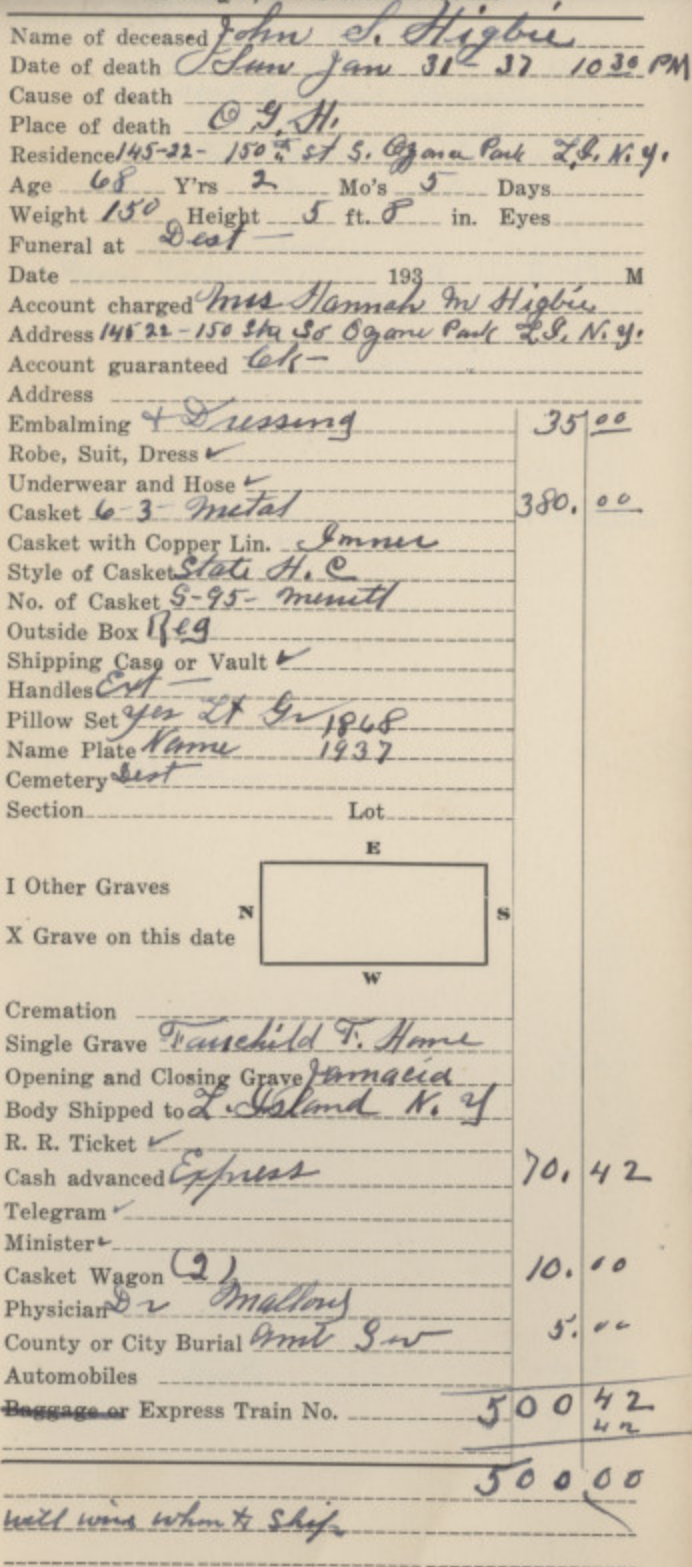 Name of deceased John S. Higbie
Date of death Sun Jan 31 - 37 10 30 PM
Cause of death
Place of death O. G. H.
Residence 145-22- 150th St S. Ozone Park L.I. N.Y.
Age 68 Y'rs 2 Mo's 5 Days
Weight 150 Height 5 ft. 8 in. Eyes
Funeral at Dest -
Date 193 M
Account charged Mrs Hannah M Higbie
Address 145 22 - 150 So Ozone Park L.I. N.Y.
Account guaranteed Ck -
Address
Embalming + Dressing 35 00
Robe, Suit, Dress ✓
Underwear and Hose ✓
Casket 6-3- Metal 380. 00
Casket with Copper Lin. Inner
Style of Casket State H. C
No. of Casket S-95- Merritt
Outside Box Reg
Shipping Case or Vault ✓
Handles Ext -
Pillow Set yes Lt Gr 1868
Name Plate Name 1937
Cemetery Dest
Section Lot
E
I Other Graves
N S
X Grave on this date
W
Cremation
Single Grave Fairchild F. Home
Opening and Closing Grave Jamacia
Body Shipped to L. Island N. Y
R. R. Ticket ✓
Cash advanced Express 70. 42
Telegram ✓
Minister ✓
Casket Wagon (2) 10. 00
Physician Dr
County or City Burial Amt 5. 00
Automobiles
Baggage or Express Train No. 500 42
42
500.00
will wire when to ship